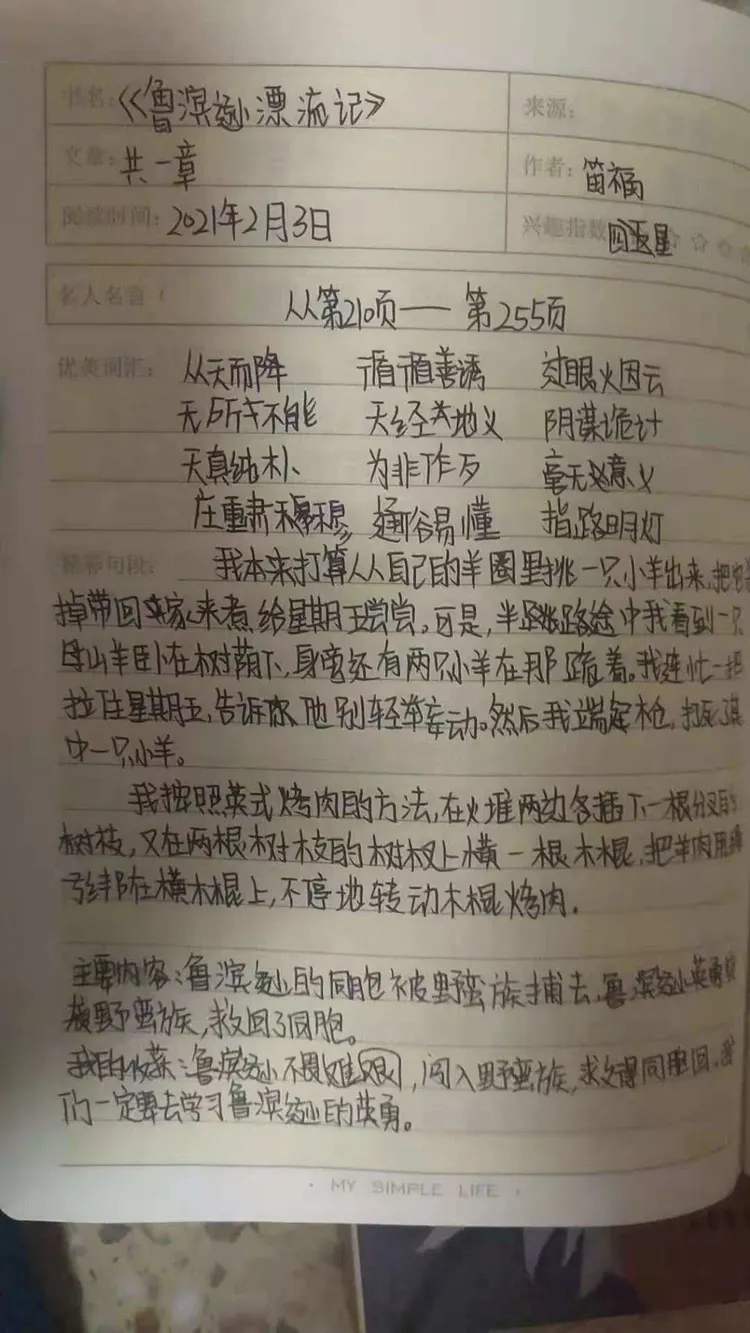 书名：《鲁滨逊漂流记》 来源：
文章：共一章 作者：笛福
阅读时间：2021年2月3日 兴趣指数 四颗星
名人名言（ 从第210页——第255页
优美词汇： 从天而降 循循善诱 过眼烟云
无所不能 天经地义 阴谋诡计
天真纯朴 为非作歹 毫无意义
庄重肃穆 通俗易懂 指路明灯
精彩句段： 我本来打算从自己的羊圈里挑一只小羊出来，把它
掉带回家来煮给星期五尝尝。可是，半路途中我看到一只
母山羊卧在树荫下，身旁还有两只小羊在那蹲着。我连忙一把
拉住星期五，告诉他别轻举妄动。然后我端定枪，打死了其
中一只小羊。
我按照英式烤肉的方法，在火堆两边各插下一根分叉的
树枝，又在两根树枝的树杈上横一根木棍，把羊肉用绳
绑在横木棍上，不停地转动木棍烤肉。
主要内容：鲁滨逊的同胞被野蛮族捕去，鲁滨逊英勇
野蛮族，救回了同胞。
我的收获：鲁滨逊不畏艰难，闯入野蛮族，求得同胞回，我
们一定要去学习鲁滨逊的英勇。
· MY SIMPLE LIFE ·